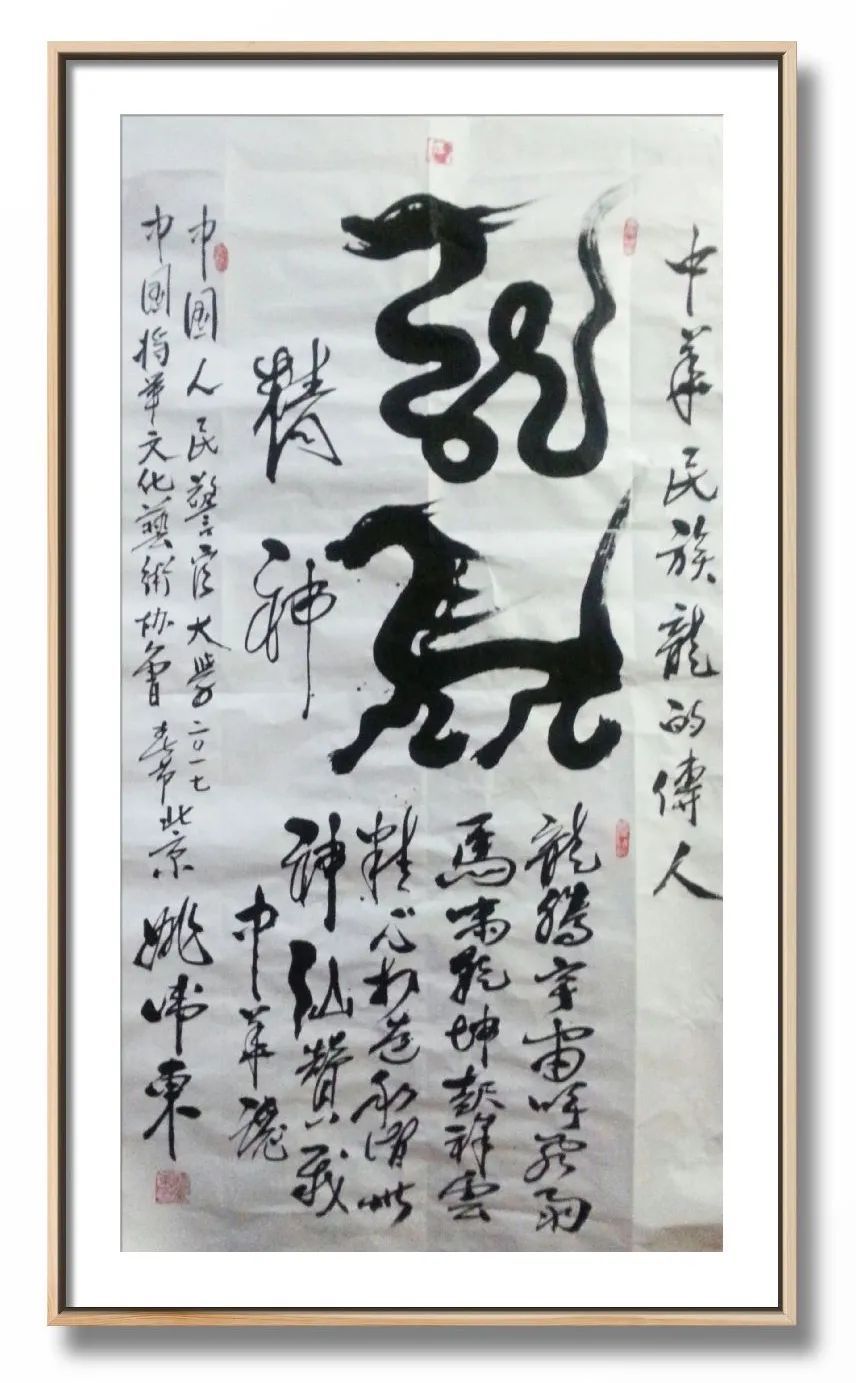 中華民族龍的傳人
龍馬
精神
龍騰宇宙呼風雨
馬嘯乾坤起祥雲
精心打造永潛世
神仙贊我
中華魂
中國人民警官大學二〇一七
中國將軍文化藝術协會春节北京
姚帏東